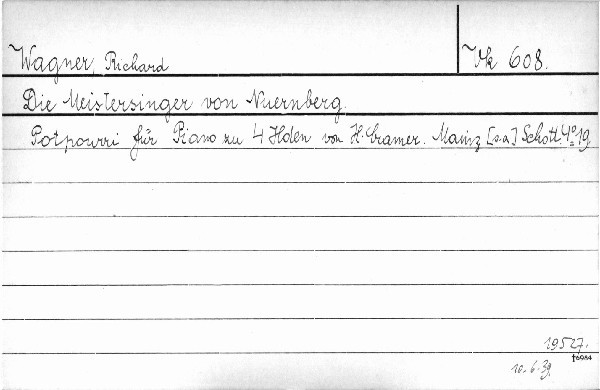 Wagner, Richard
Vk 608.
Die Meistersinger von Nuernberg.
Potpourri für Piano zu 4 Hden von H. Cramer. Mainz [s.a.] Schott. 4° 19
19527.
10.6.39.